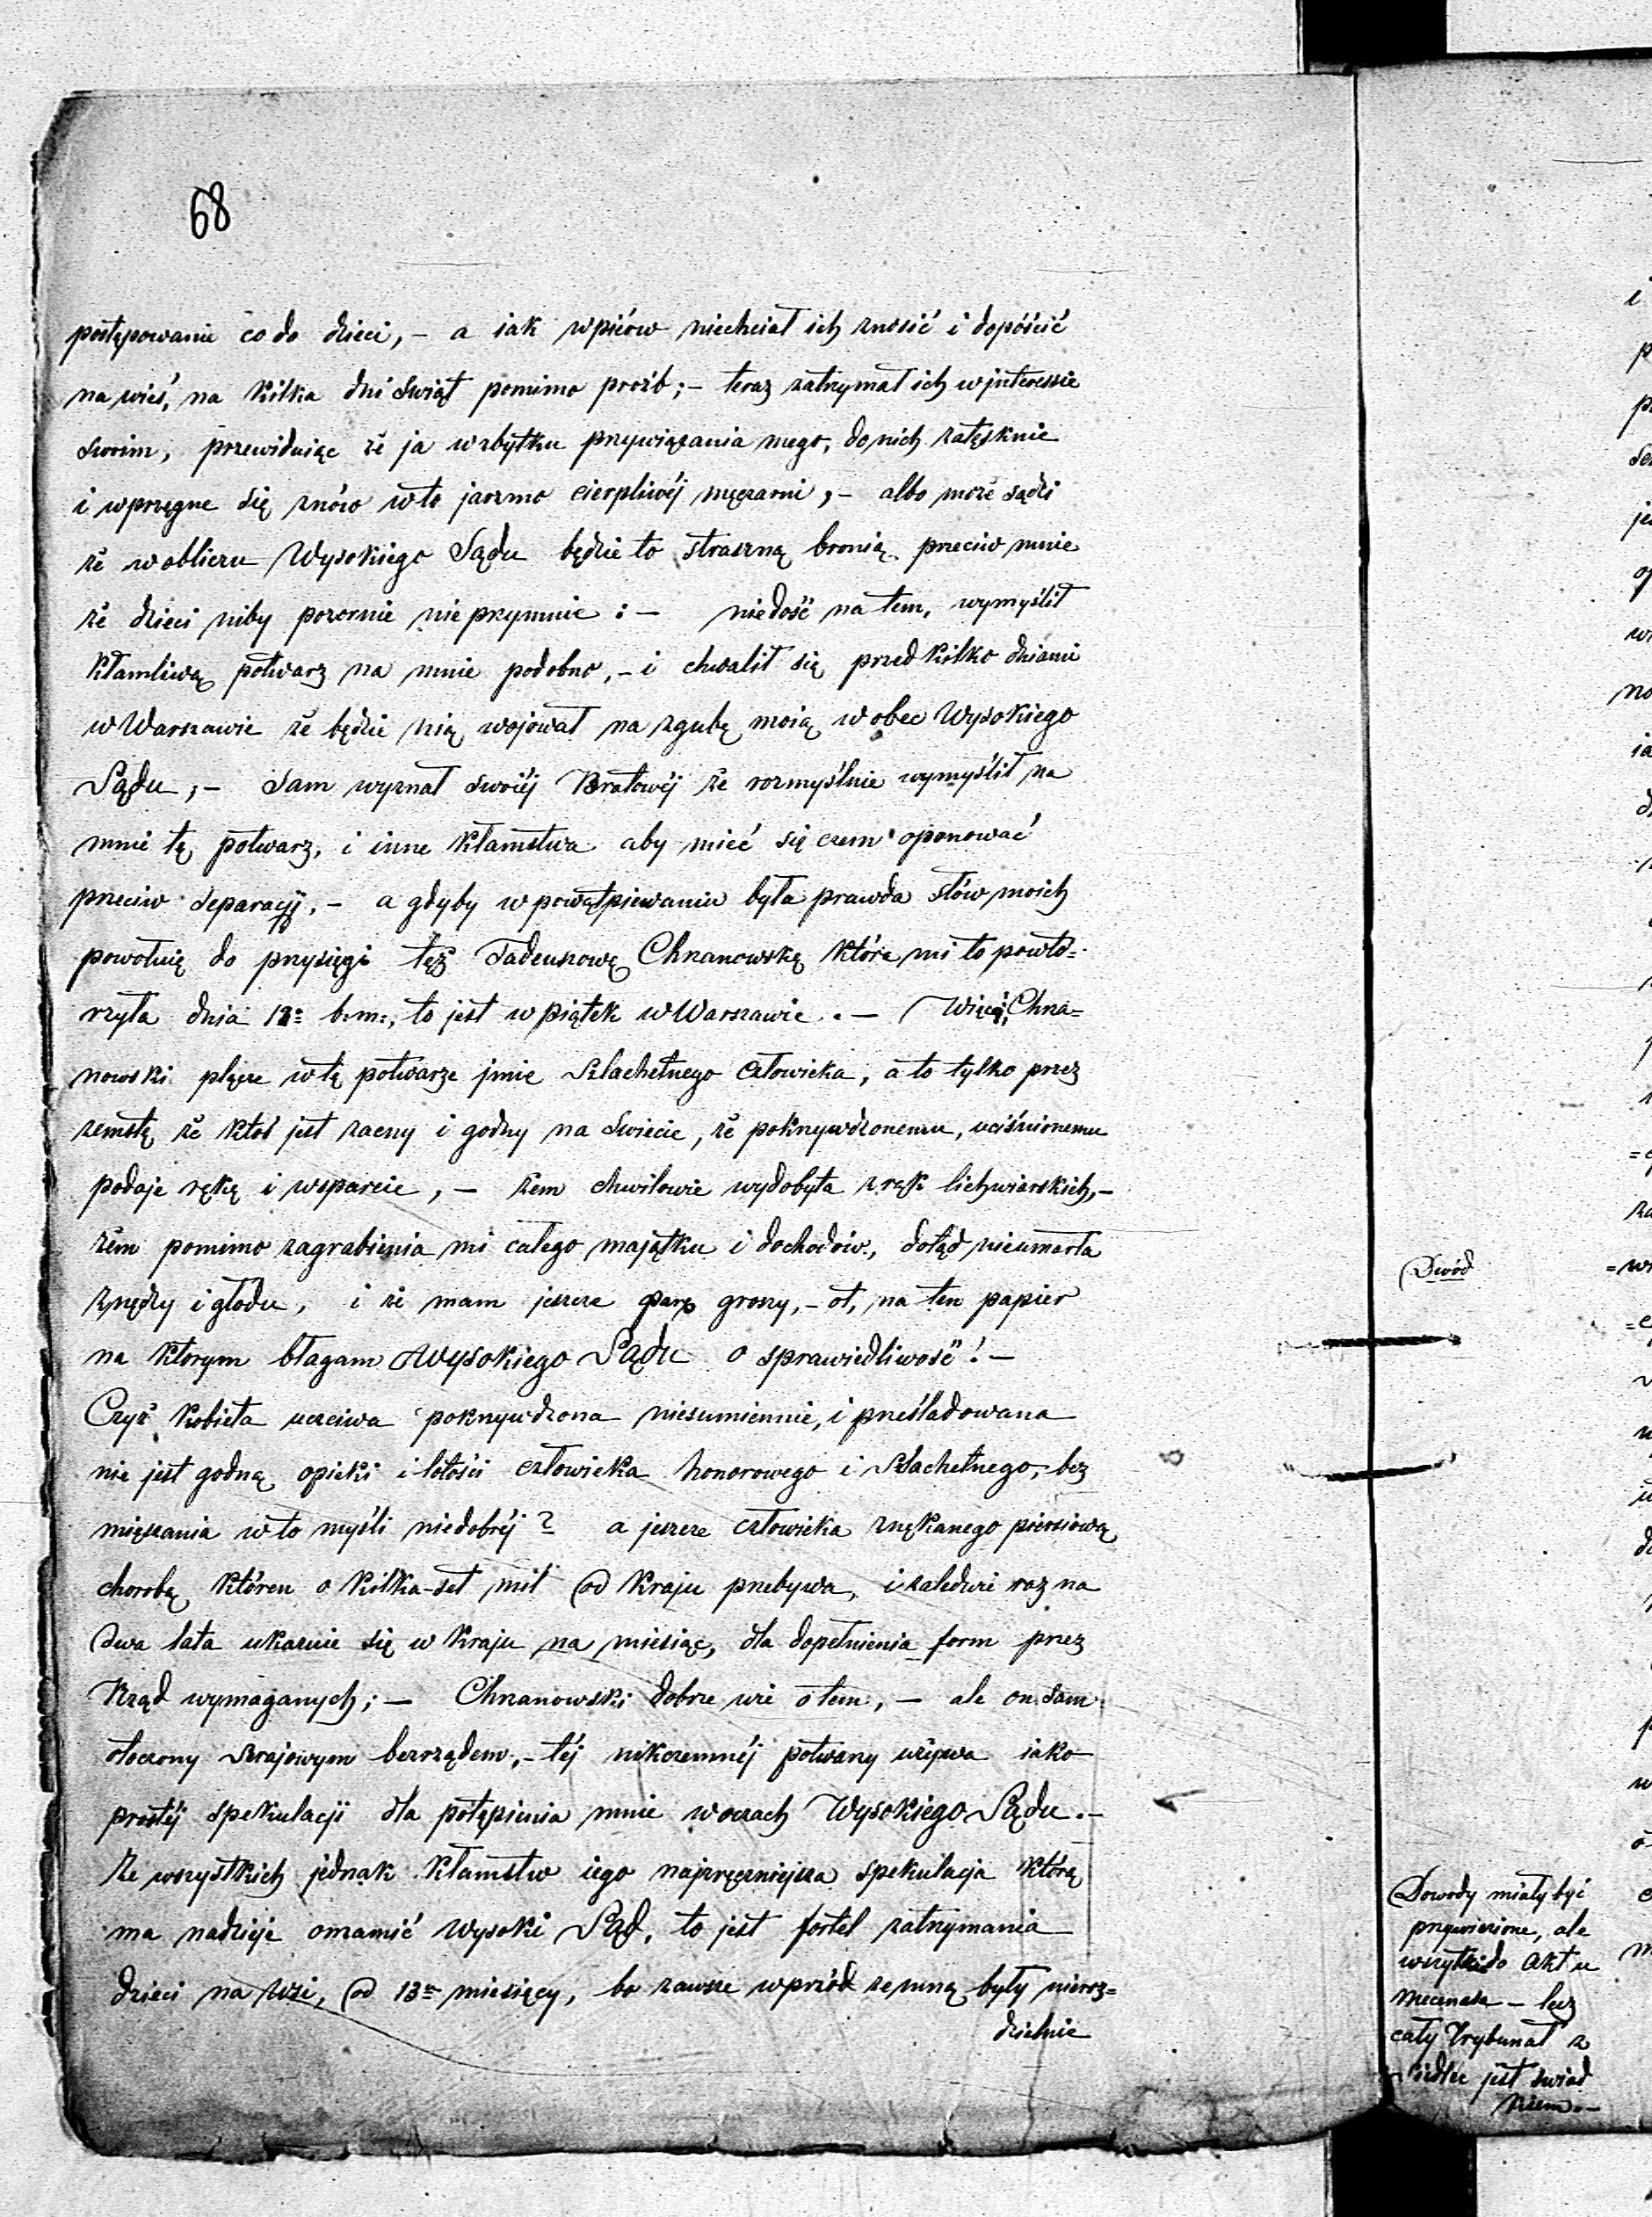 68
postępowanie co do dzieci, – a iak wpiérw niechciał ich znosić i dopóścić
na wieś, na kilka dni Swiąt pomimo proźb; – teraz zatrzymał ich w interessie
swoim, przewiduiąc że ja w zbytku przywiązania mego, do nich zatęsknie
i wprzęgne się znów w to jarzmo cierpliwéj męczarni, – albo może sądzi
że w obliczu Wysokiego Sądu będzie to straszną bronią przeciw mnie
że dzieci niby pozornie nie przymnie: – niedość na tem, wymyślił
kłamliwą potwarz na mnie podobno, – i chwalił się przed kilko dniami
w Warszawie że będzie nią wojował na zgubę moią w obec Wysokiego
Sądu; – Sam wyznał swoiéj Bratowéj że rozmyślnie wymyślił na
mnie tę potwarz, i inne kłamstwa aby mieć się czem oponować
przeciw separacji, – a gdyby w powątpiewaniu była prawda słów moich
powołuię do przysięgi tęż Tadeuszowę Chrzanowskę która mi to powtó=
rzyła dnia b. m:, to jest w piątek w Warszawie. – Więcéj, Chrza=
nowski plącze w tę potwarze jmie Szlachetnego człowieka, a to tylko przez
zemstę że ktoś jest zacny i godny na Swiecie, że pokrzywdzonemu, uciśnionemu
podaje rękę i wsparcie, – żem chwilowie wydobyła z rąk lichwiarskich, –
żem pomimo zagrabienia mi całego majątku i dochodów, dotąd nieumarła
z nędzy i głodu, i że mam jeszcze parę groszy, – ot, na ten papier
na ktorym błagam Wysokiego Sądu o sprawiedliwość! –
Czyż kobieta uczciwa pokrzywdzona niesumiennie, i prześladowana
nie jest godną opieki i litości człowieka honorowego i Szlachetnego, bez
mięszania w to myśli niedobréj? a jeszcze człowieka znękanego piersiową
chorobą któren o kilka-set mil od Kraju przebywa, i zaledwie raz na
dwa lata ukazuie się w Kraju na miesiąc, dla dopełnienia form przez
Rząd wymaganych; – Chrzanowski dobrze wie o tem, – ale on sam
otoczony bezrządem, – téj nikczemnéj potwarzy używa iako
prostéj spekulacji dla potępienia mnie w oczach Wysokiego Sądu. –
Ze wszystkich jednak kłamstw iego najzręczniejsza spekulacja którą
ma nadzieje omamić Wysoki Sąd, to jest fortel zatrzymania
dzieci na Wsi, od 13tu miesięcy, bo zawsze wprzód zemną były nieroz=
dzielnie
Dowód
Dowody miały być
przywiezione, ale
wszytkie do Akt u
Mecenasa – lecz
cały Trybunał z
Siedlec jest świad
kiem. –